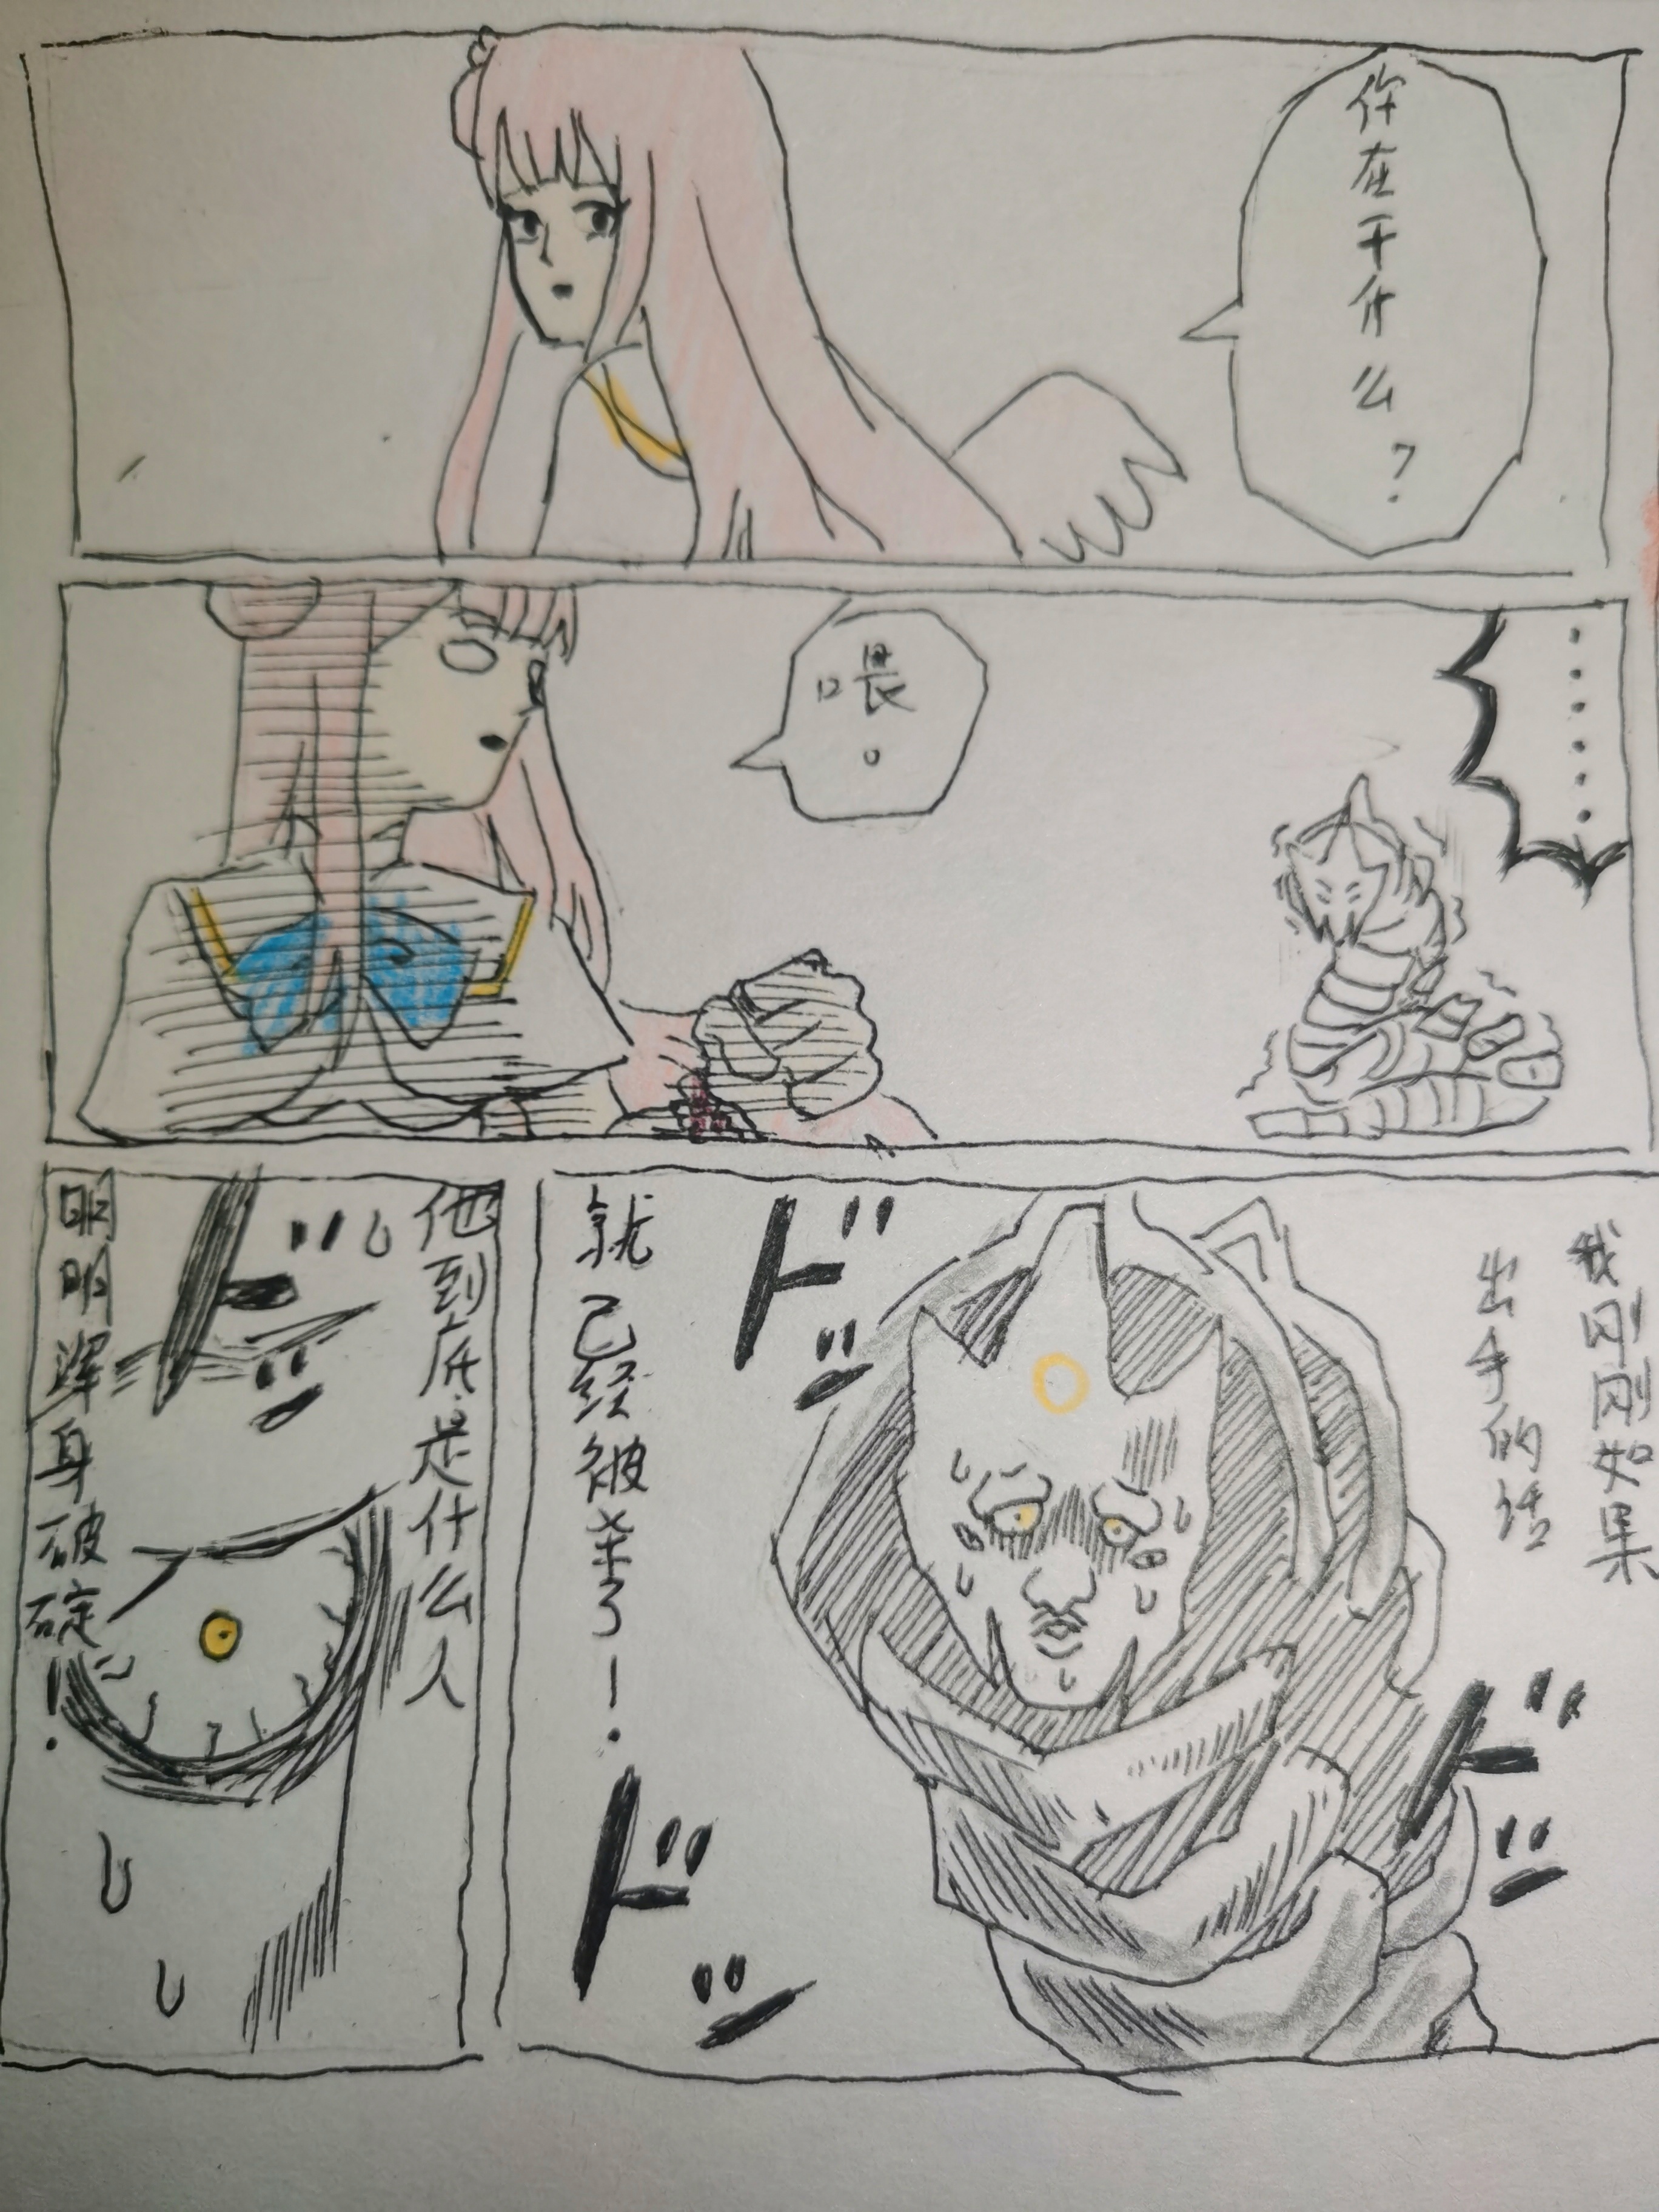 你在干什么?
......
喂。
我刚刚如果
出手的话
就已经被杀了!
ドドッ
ドドッ
ドドッ
他到底是什么人
ドドッ
明明浑身破碇!